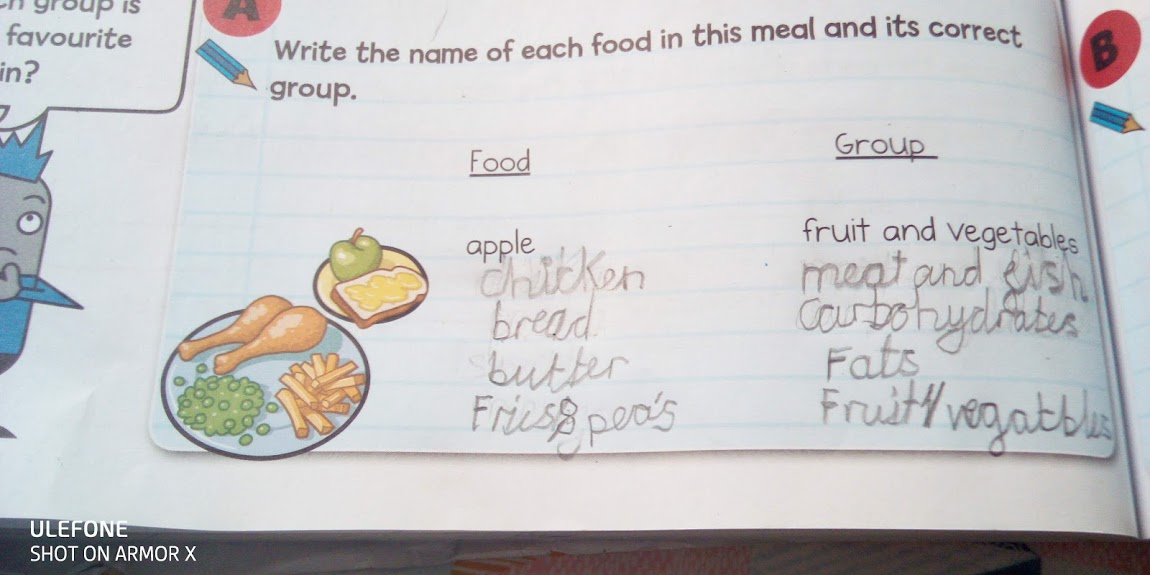 group is
favourite
in?
A
Write the name of each food in this meal and its correct
group.
B
Food
Group
apple
fruit and vegetables
chicken
meat and fish
bread
Carbohydrates
butter
Fats
Fries & pea's
Fruit// vegatbles
ULEFONE
SHOT ON ARMOR X